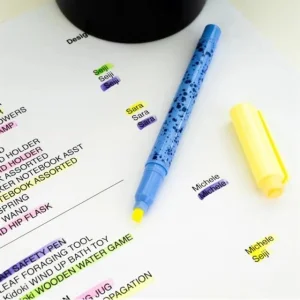 Desig
Seiji
Seiji
Seiji
OWERS
AMP
Sara
Sara
D HOLDER
ND HOLDER
ASSORTED
KER NOTEBOOK ASST
OTEBOOK ASSORTED
SPRING
WAND
ND HIP FLASK
Michele
Michele
AR SAFETY PEN
LEAF FORAGING TOOL
Kidoki WIND UP BATH TOY
Kidoki WOODEN WATER GAME
Michele
Seiji
NG JUG
OPAGATION